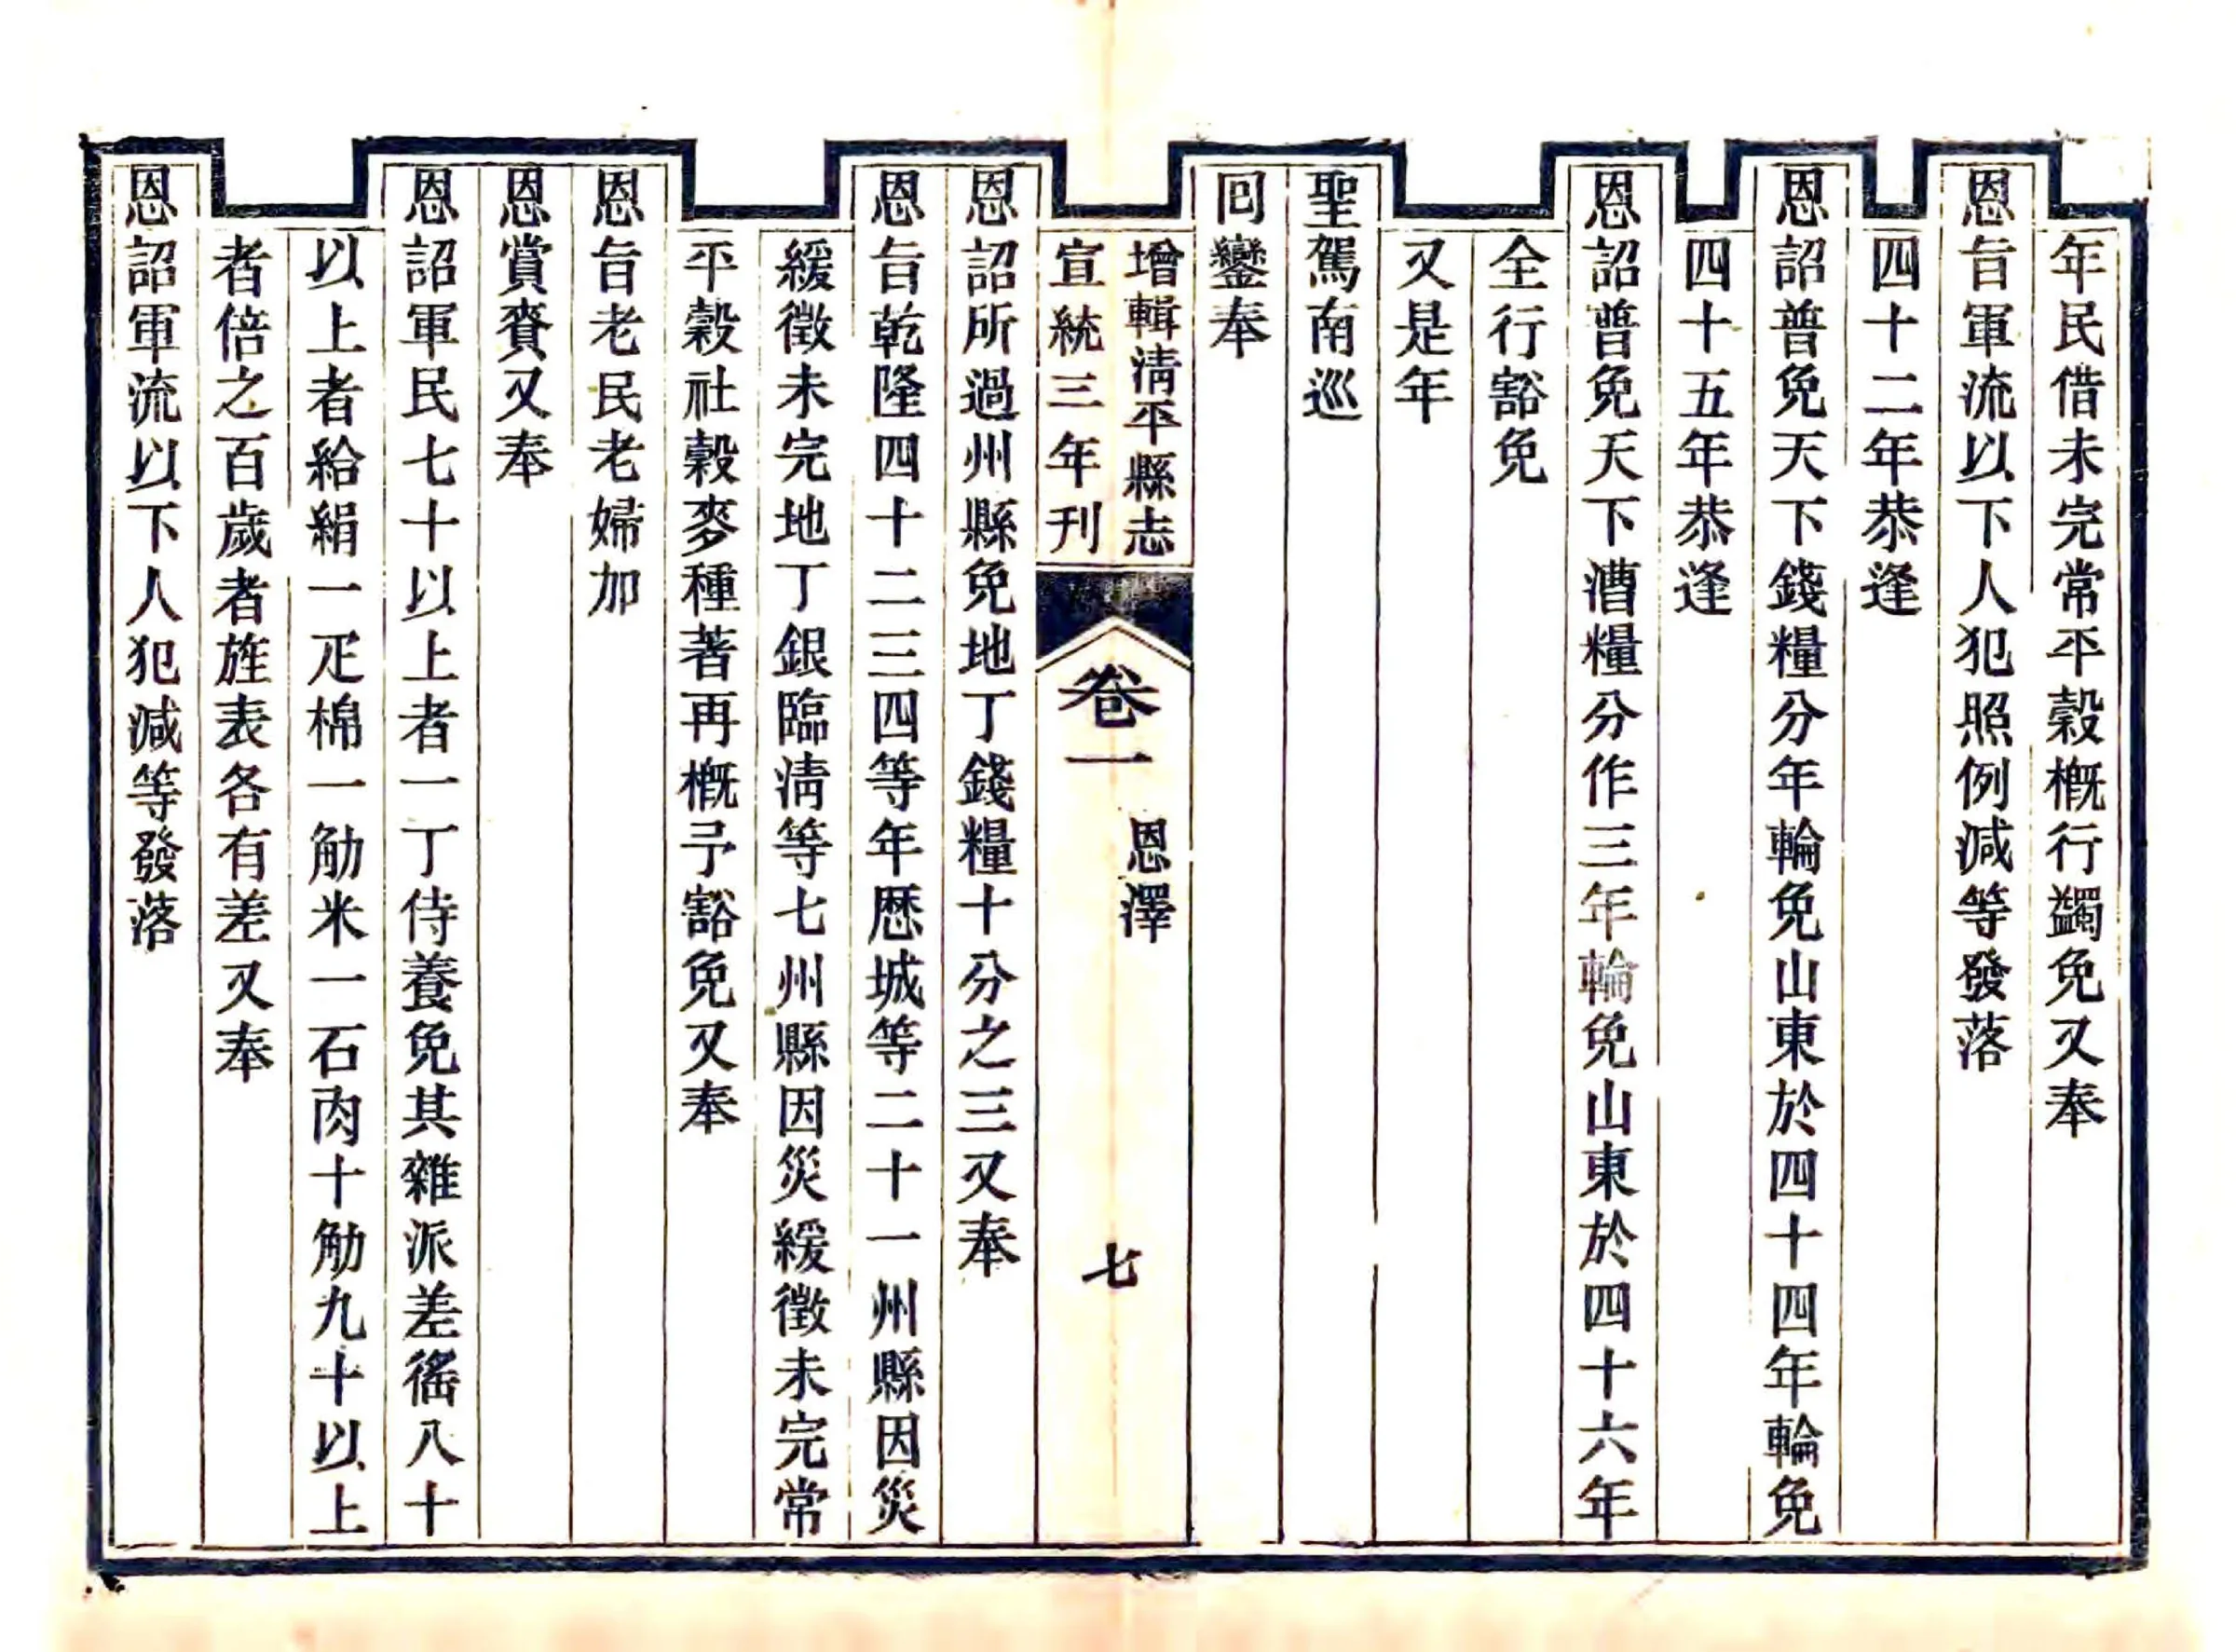 年民借未完常平穀概行蠲免又奉
恩旨軍流以下人犯照例減等發落
四十二年恭逢
恩詔普免天下錢糧分年輪免山東於四十四年輪免
四十五年恭逢
恩詔普免天下漕糧分作三年輪免山東於四十六年
全行豁免
又是年
聖駕南巡
回鑾奉
增輯淸平縣志
宣統三年刊
卷一
恩澤
七
恩詔所過州縣免地丁錢糧十分之三又奉
恩旨乾隆四十二三四等年歷城等二十一州縣因災
緩徵未完地丁銀臨淸等七州縣因災緩徵未完常
平穀社穀麥種著再概予豁免又奉
恩旨老民老婦加
恩賞賚又奉
恩詔軍民七十以上者一丁侍養免其雜派差徭八十
以上者給絹一疋棉一觔米一石肉十觔九十以上
者倍之百歲者旌表各有差又奉
恩詔軍流以下人犯減等發落